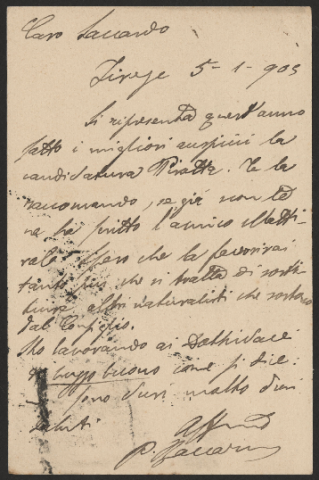 Caro Saccardo
Firenze 5-1-905
Si ripresenta quest'anno
sotto i migliori auspicii la
candidatura Pirotta. Te la
raccomando, se già non te
ne ha scritto l'amico Matti-
rolo. Spero che la favorirai
tanto più che si tratta di sosti-
tuire altri naturalisti che sortono
dal Consiglio.
Sto lavorando ai Dothidacei
di buzzo buono come si dice:
sono duri molto duri
Saluti
Aff
P. Baccarini